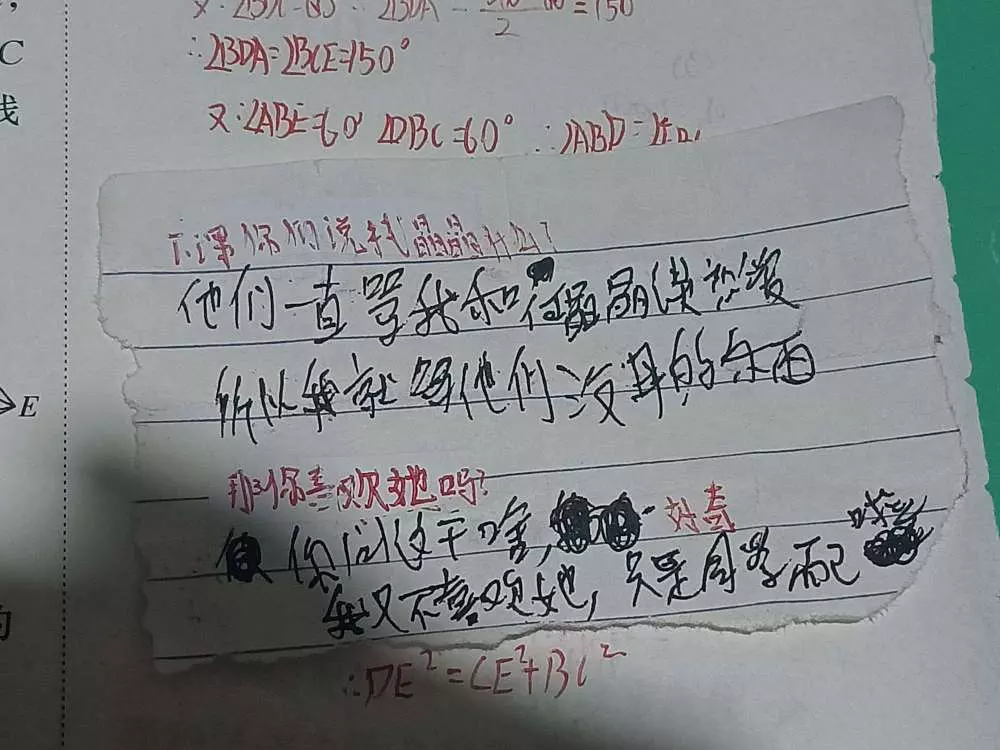 C
线
∴∠BDA=∠BCE=150°
又∵∠ABE=60° ∠DBC=60° ∴∠ABD=
下课你们说我晶晶什么?
他们一直骂我和 晶晶谈恋爱
所以我就骂他们没 的东西
E
那你喜欢她吗?
你问这干啥, 好奇
我又不喜欢她, 只是同学而已
的
∴DE²=CE²+BC²